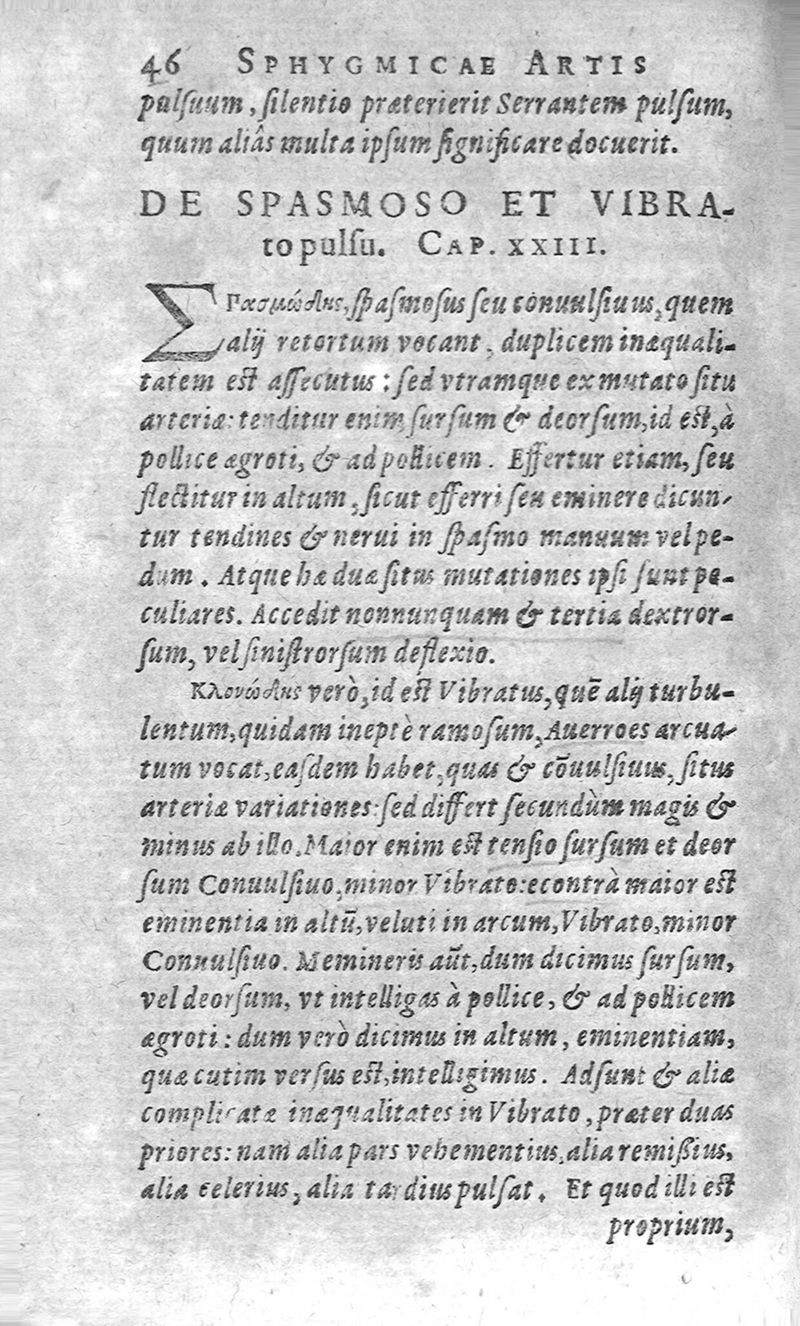 46 SPHYGMICAE ARTIS
pulsuum, silentio præterierit Serrantem pulsum,
quum aliâs multa ipsum significare docuerit.
DE SPASMOSO ET VIBRA-
to pulsu. CAP. XXIII.
Σπασμώδης, spasmosus seu conuulsiuus, quem
alij retortum vocant, duplicem inæquali-
tatem est assecutus: sed vtramque ex mutato situ
arteriæ: tenditur enim sursum & deorsum, id est, à
pollice ægroti, & ad pollicem. Effertur etiam, seu
flectitur in altum, sicut efferri seu eminere dicun-
tur tendines & nerui in spasmo manuum vel pe-
dum. Atque hæ duæ situs mutationes ipsi sunt pe-
culiares. Accedit nonnunquam & tertia dextror-
sum, vel sinistrorsum deflexio.
Κλονώδης verò, id est Vibratus, quē alij turbu-
lentum, quidam ineptè ramosum, Auerroes arcua-
tum vocat, easdem habet, quas & cōuulsiuus, situs
arteriæ variationes: sed differt secundùm magis &
minus ab illo. Maior enim est tensio sursum et deor
sum Conuulsiuo, minor Vibrato: econtrà maior est
eminentia in altū, veluti in arcum, Vibrato, minor
Conuulsiuo. Memineris aūt, dum dicimus sursum,
vel deorsum, vt intelligas à pollice, & ad pollicem
ægroti: dum verò dicimus in altum, eminentiam,
quæ cutim versus est, intelligimus. Adsunt & aliæ
complicatæ inæqualitates in Vibrato, præter duas
priores: nam alia pars vehementius, alia remißius,
alia celerius, alia tardius pulsat. Et quod illi est
proprium,